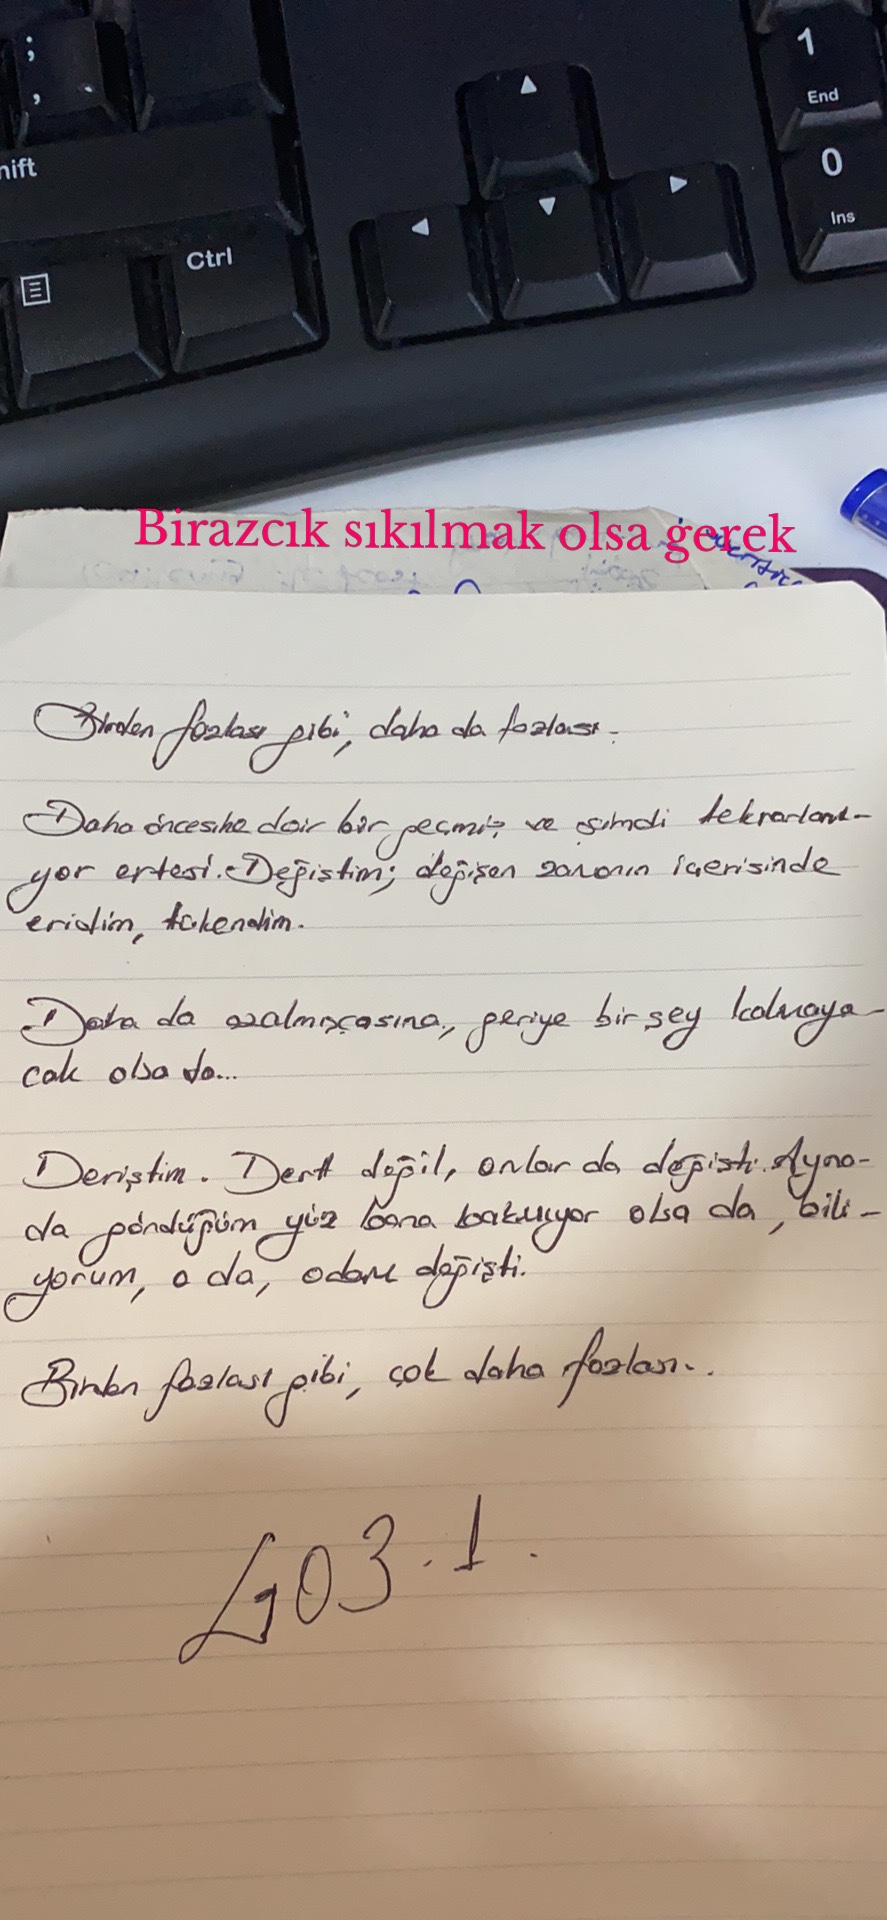 ;
,
1
End
hift
0
Ins
Ctrl
Birazcık sıkılmak olsa gerek
Birden fazlası gibi, daha da fazlası.
Daha öncesine dair bir geçmiş ve şimdi tekrarlanı-
yor ertesi. Değiştim; değişen zamanın içerisinde
eridim, tükendim.
Daha da azalmışçasına, geriye bir şey kalmaya-
cak olsa da...
Deriştim. Dert değil, onlar da değişti. Ayna-
da gördüğüm yüz bana bakıyor olsa da, bili-
yorum, o da, adam değişti.
Birden fazlası gibi, çok daha fazlası..